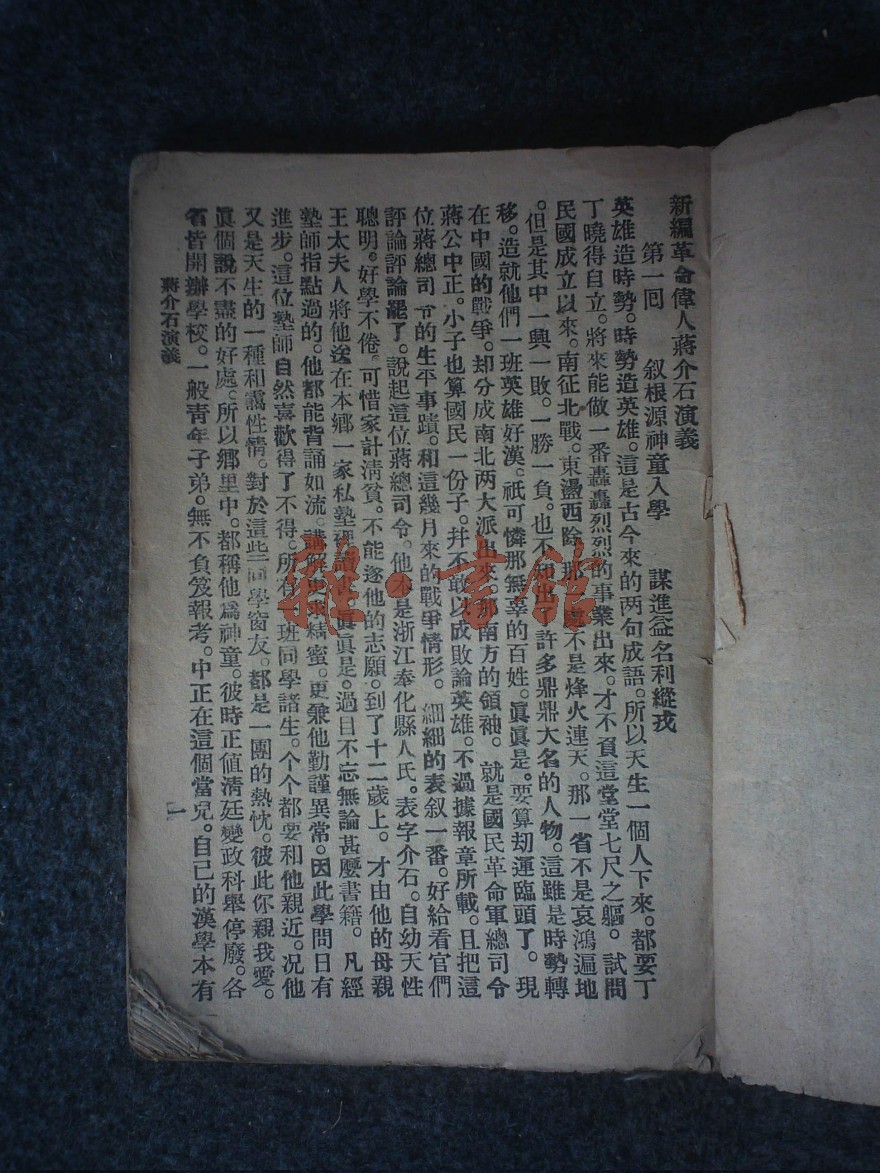 新編革命偉人蔣介石演義
第一回 叙根源神童入學 謀進益名利縱戎
英雄造時勢。時勢造英雄。這是古今來的两句成語。所以天生一個人下來。都要丁
丁曉得自立。將來能做一番轟轟烈烈的事業出來。才不負這堂堂七尺之軀。試問
民國成立以來。南征北戰。東盪西除。那一處不是烽火連天。那一省不是哀鴻遍地
。但是其中一興一敗。一勝一負。也不知出許多鼎鼎大名的人物。這雖是時勢轉
移。造就他們一班英雄好漢。祇可憐那無辜的百姓。眞眞是。要算刧運臨頭了。現
在中國的戰爭。却分成南北两大派出來。那南方的領袖。就是國民革命軍總司令
蔣公中正。小子也算國民一份子。幷不敢以成敗論英雄。不過據報章所載。且把這
位蔣總司令的生平事蹟。和這幾月來的戰爭情形。細細的表叙一番。好給看官們
評論評論罷了。說起這位蔣總司令。他本是浙江奉化縣人氏。表字介石。自幼天性
聰明。好學不倦。可惜家計淸貧。不能遂他的志願。到了十二歲上。才由他的母親
王太夫人將他送在本鄉一家私塾裡讀書。眞眞是。過目不忘無論甚麼書籍。凡經
塾師指點過的。他都能背誦如流。講解更求精蜜。更兼他勤謹異常。因此學問日有
進步。這位塾師自然喜歡得了不得。所有一班同學諸生。个个都要和他親近。况他
又是天生的一種和靄性情。對於這些同學窗友。都是一團的熱忱。彼此你親我愛。
眞個說不盡的好處。所以鄉里中。都稱他爲神童。彼時正値淸廷變政科舉停廢。各
省皆開辦學校。一般靑年子弟。無不負笈報考。中正在這個當兒。自已的漢學本有
蔣介石演義
一
雜·書館